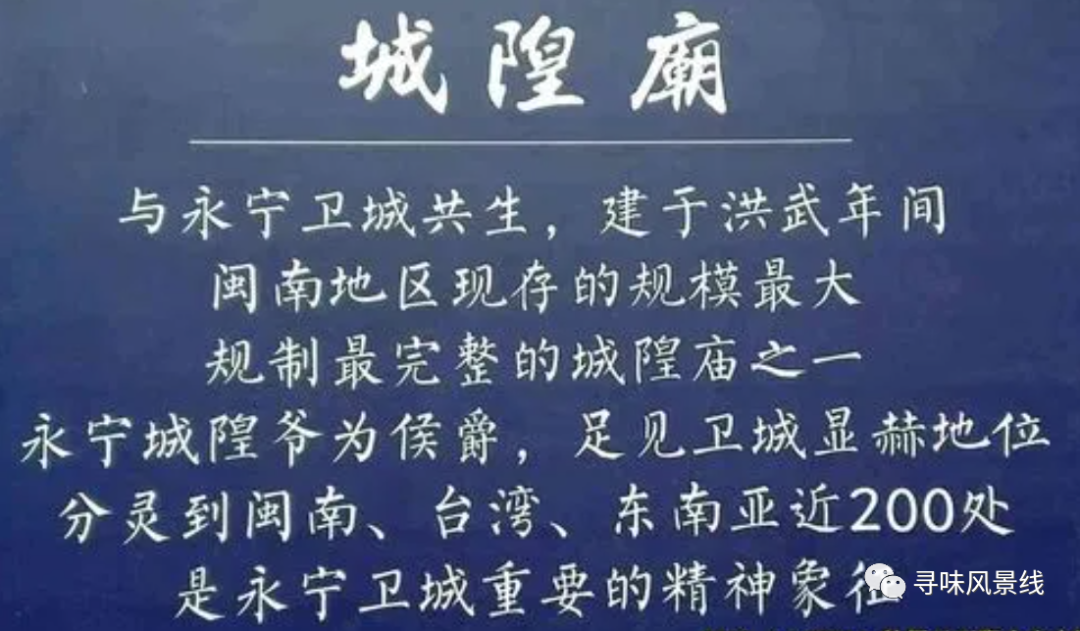 城隍廟
与永宁卫城共生，建于洪武年间
闽南地区现存的规模最大
规制最完整的城隍庙之一
永宁城隍爷为侯爵，足见卫城显赫地位
分灵到闽南、台湾、东南亚近200处
是永宁卫城重要的精神象征
寻味风景线